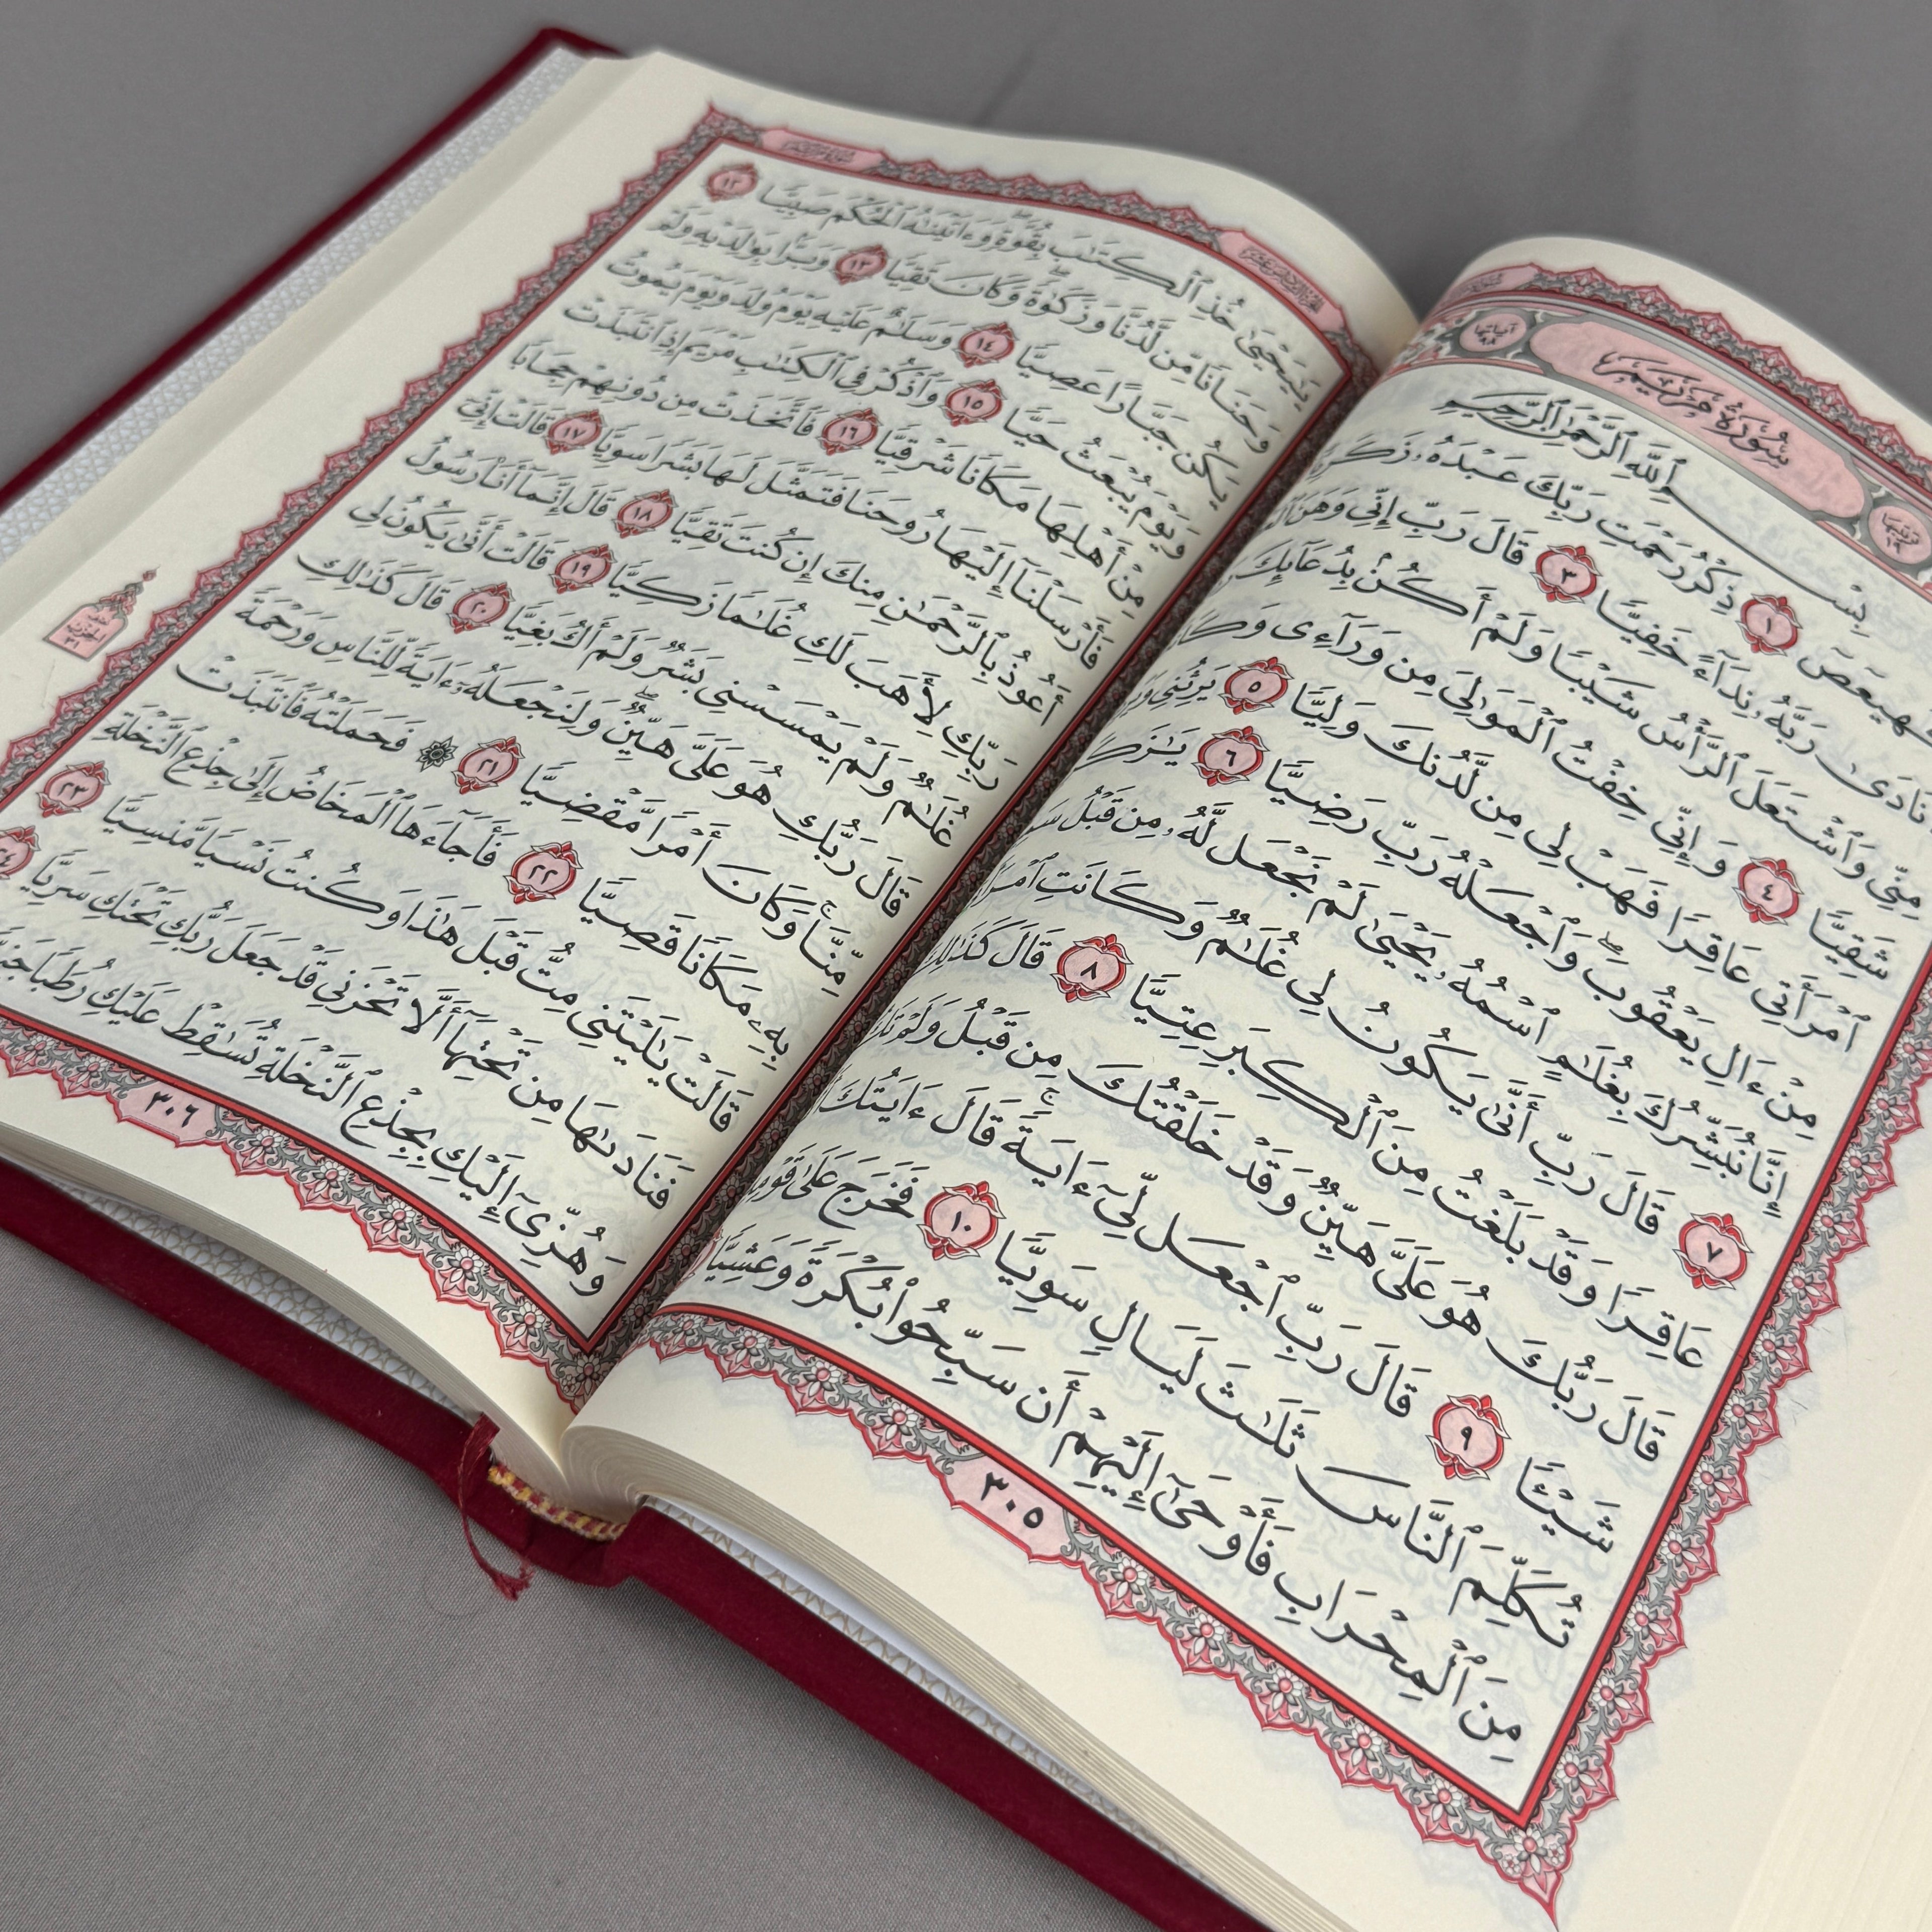 سُورَةُ مَرْيَمَ
ترتيبها ١٩
آياتها
بِسْمِ ٱللَّهِ ٱلرَّحْمَٰنِ ٱلرَّحِيمِ
كٓهيعٓصٓ ١ ذِكْرُ رَحْمَتِ رَبِّكَ عَبْدَهُۥ
نَادَىٰ رَبَّهُۥ نِدَآءً خَفِيًّا ٣ قَالَ رَبِّ إِنِّى وَهَنَ
مِنِّى وَٱشْتَعَلَ ٱلرَّأْسُ شَيْبًا وَلَمْ أَكُنۢ بِدُعَآئِكَ
شَقِيًّا ٤ وَإِنِّى خِفْتُ ٱلْمَوَٰلِىَ مِن وَرَآءِى
ٱمْرَأَتِى عَاقِرًا فَهَبْ لِى مِن لَّدُنكَ وَلِيًّا ٥ يَرِثُنِى
مِنْ ءَالِ يَعْقُوبَ ۖ وَٱجْعَلْهُ رَبِّ رَضِيًّا ٦
إِنَّا نُبَشِّرُكَ بِغُلَٰمٍ ٱسْمُهُۥ يَحْيَىٰ لَمْ نَجْعَل لَّهُۥ مِن قَبْلُ
٧ قَالَ رَبِّ أَنَّىٰ يَكُونُ لِى غُلَٰمٌ وَكَانَتِ
عَاقِرًا وَقَدْ بَلَغْتُ مِنَ ٱلْكِبَرِ عِتِيًّا ٨ قَالَ كَذَٰلِكَ
قَالَ رَبُّكَ هُوَ عَلَىَّ هَيِّنٌ وَقَدْ خَلَقْتُكَ مِن قَبْلُ وَلَمْ تَكُ
شَيْـًٔا ٩ قَالَ رَبِّ ٱجْعَل لِّىٓ ءَايَةً ۚ قَالَ ءَايَتُكَ
تُكَلِّمَ ٱلنَّاسَ ثَلَٰثَ لَيَالٍ سَوِيًّا ١٠ فَخَرَجَ عَلَىٰ
مِنَ ٱلْمِحْرَابِ فَأَوْحَىٰٓ إِلَيْهِمْ أَن سَبِّحُوا۟ بُكْرَةً وَعَشِيًّا
٣٠٥
يَٰيَحْيَىٰ خُذِ ٱلْكِتَٰبَ بِقُوَّةٍ ۖ وَءَاتَيْنَٰهُ ٱلْحُكْمَ صَبِيًّا ١٢
وَحَنَانًا مِّن لَّدُنَّا وَزَكَوٰةً ۖ وَكَانَ تَقِيًّا ١٣ وَبَرًّۢا بِوَٰلِدَيْهِ وَلَمْ
يَكُن جَبَّارًا عَصِيًّا ١٤ وَسَلَٰمٌ عَلَيْهِ يَوْمَ وُلِدَ وَيَوْمَ يَمُوتُ
وَيَوْمَ يُبْعَثُ حَيًّا ١٥ وَٱذْكُرْ فِى ٱلْكِتَٰبِ مَرْيَمَ إِذِ ٱنتَبَذَتْ
مِنْ أَهْلِهَا مَكَانًا شَرْقِيًّا ١٦ فَٱتَّخَذَتْ مِن دُونِهِمْ حِجَابًا
فَأَرْسَلْنَآ إِلَيْهَا رُوحَنَا فَتَمَثَّلَ لَهَا بَشَرًا سَوِيًّا ١٧ قَالَتْ إِنِّىٓ
أَعُوذُ بِٱلرَّحْمَٰنِ مِنكَ إِن كُنتَ تَقِيًّا ١٨ قَالَ إِنَّمَآ أَنَا۠ رَسُولُ
رَبِّكِ لِأَهَبَ لَكِ غُلَٰمًا زَكِيًّا ١٩ قَالَتْ أَنَّىٰ يَكُونُ لِى
غُلَٰمٌ وَلَمْ يَمْسَسْنِى بَشَرٌ وَلَمْ أَكُ بَغِيًّا ٢٠ قَالَ كَذَٰلِكِ
قَالَ رَبُّكِ هُوَ عَلَىَّ هَيِّنٌ ۖ وَلِنَجْعَلَهُۥٓ ءَايَةً لِّلنَّاسِ وَرَحْمَةً
مِّنَّا ۚ وَكَانَ أَمْرًا مَّقْضِيًّا ٢١ ۞ فَحَمَلَتْهُ فَٱنتَبَذَتْ
بِهِۦ مَكَانًا قَصِيًّا ٢٢ فَأَجَآءَهَا ٱلْمَخَاضُ إِلَىٰ جِذْعِ ٱلنَّخْلَةِ
قَالَتْ يَٰلَيْتَنِى مِتُّ قَبْلَ هَٰذَا وَكُنتُ نَسْيًا مَّنسِيًّا ٢٣
فَنَادَىٰهَا مِن تَحْتِهَآ أَلَّا تَحْزَنِى قَدْ جَعَلَ رَبُّكِ تَحْتَكِ سَرِيًّا
وَهُزِّىٓ إِلَيْكِ بِجِذْعِ ٱلنَّخْلَةِ تُسَٰقِطْ عَلَيْكِ رُطَبًا
٣٠٦